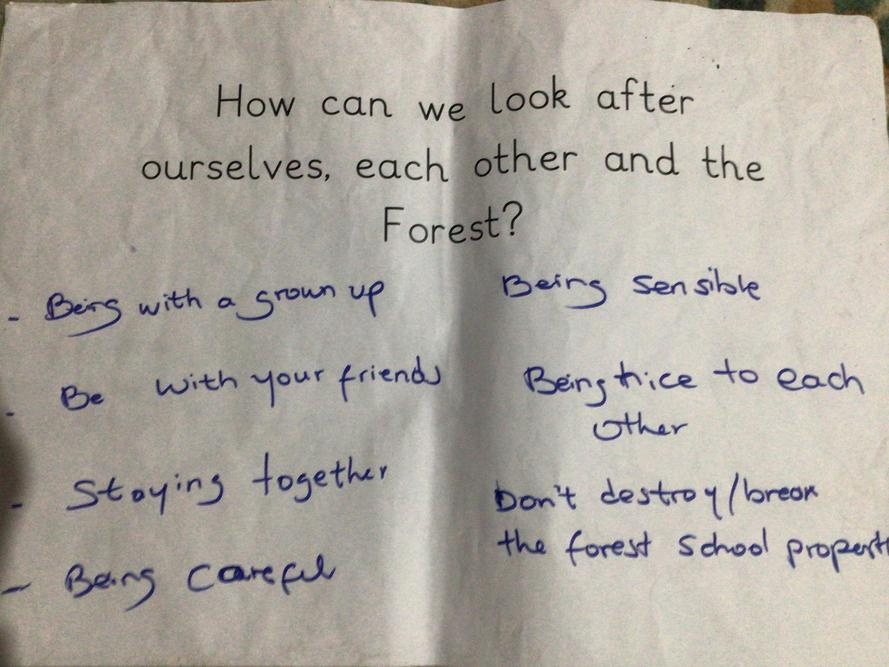 How can we look after
ourselves, each other and the
Forest?
- Being with a grown up
- Be with your friends
- Staying together
- Being careful
Being sensible
Being nice to each
other
Don't destroy/break
the forest school